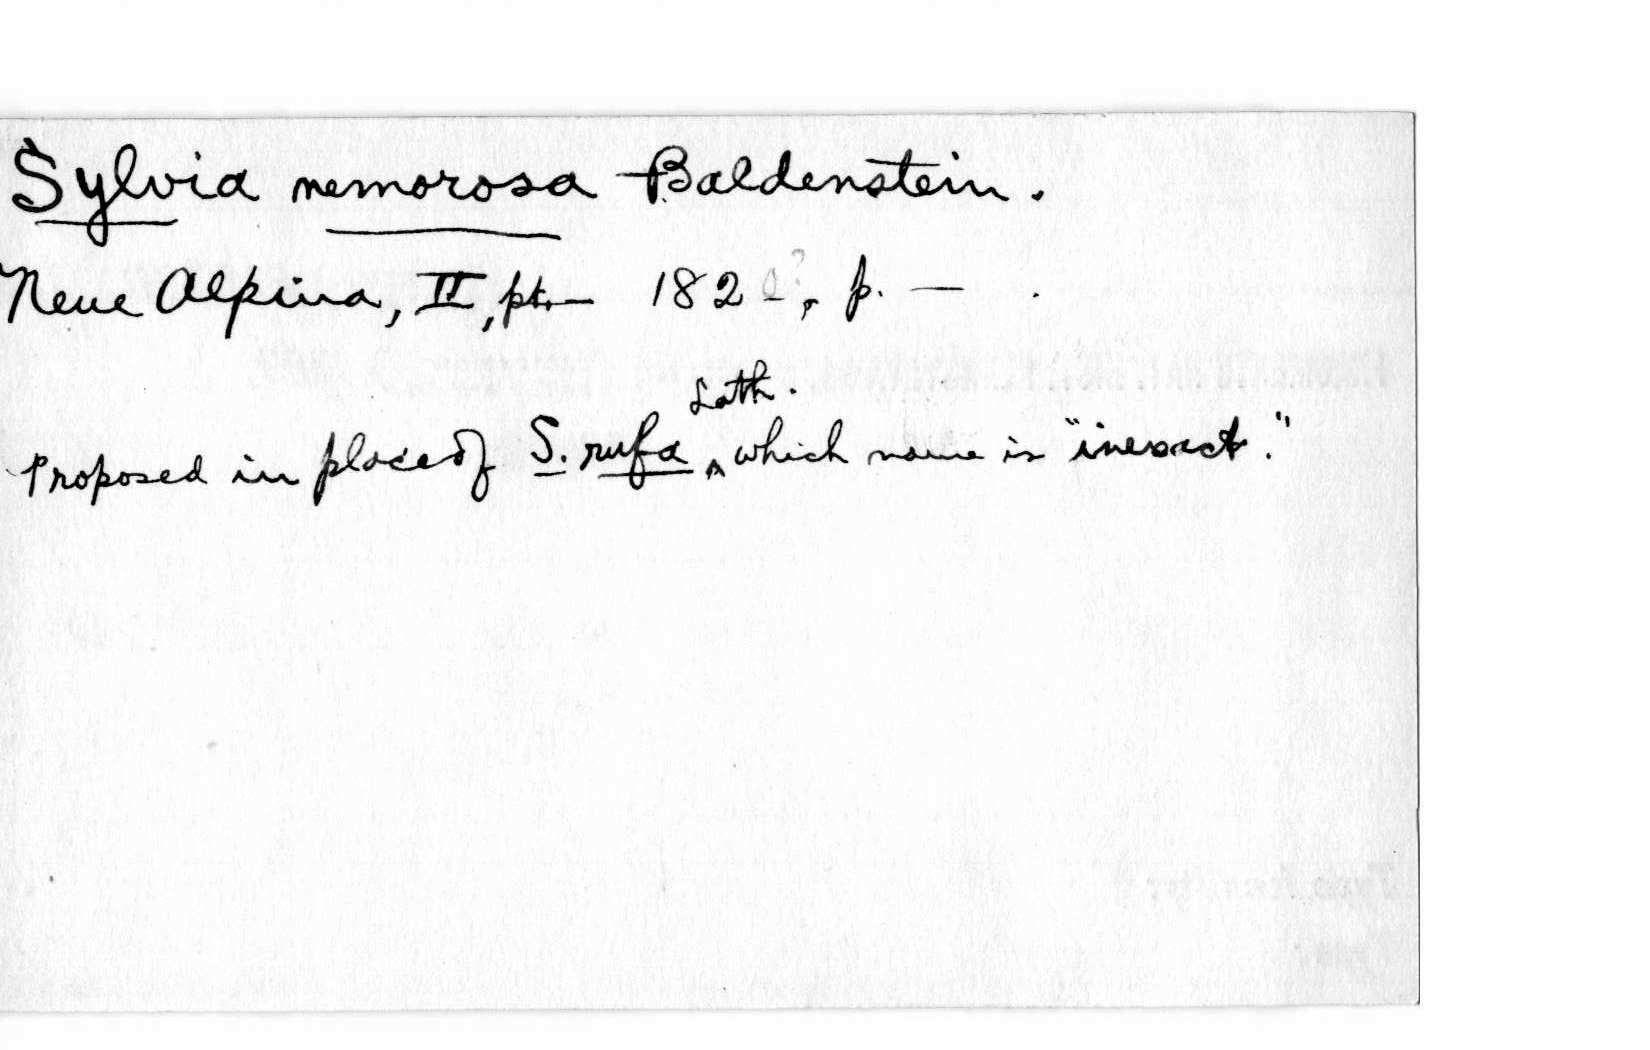 Sylvia nemorosa Baldenstein.
Neue Alpina, II, pt.— 182-, p. — .
Proposed in place of S. rufa Lath. which name is "inexact."